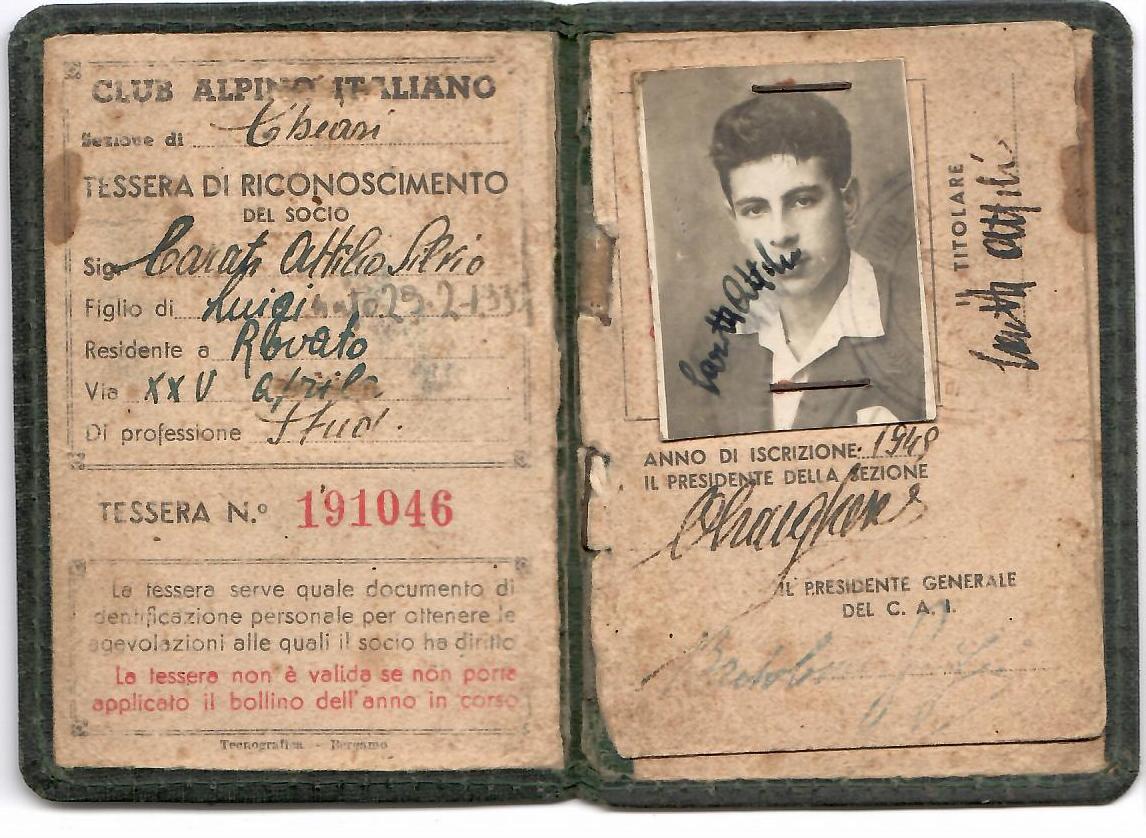 CLUB ALPINO ITALIANO
Sezione di Chiari
TESSERA DI RICONOSCIMENTO
DEL SOCIO
Sig. Attilio Silvio
Figlio di Luigi nato 29-2-193
Residente a Rovato
Via XXV aprile
Di professione Stud.
TESSERA N.º 191046
La tessera serve quale documento di
identificazione personale per ottenere le
agevolazioni alle quali il socio ha diritto
La tessera non è valida se non porta
applicato il bollino dell'anno in corso
Tecnografica - Bergamo
IL TITOLARE
ANNO DI ISCRIZIONE: 1948
IL PRESIDENTE DELLA SEZIONE
IL PRESIDENTE GENERALE
DEL C. A. I.